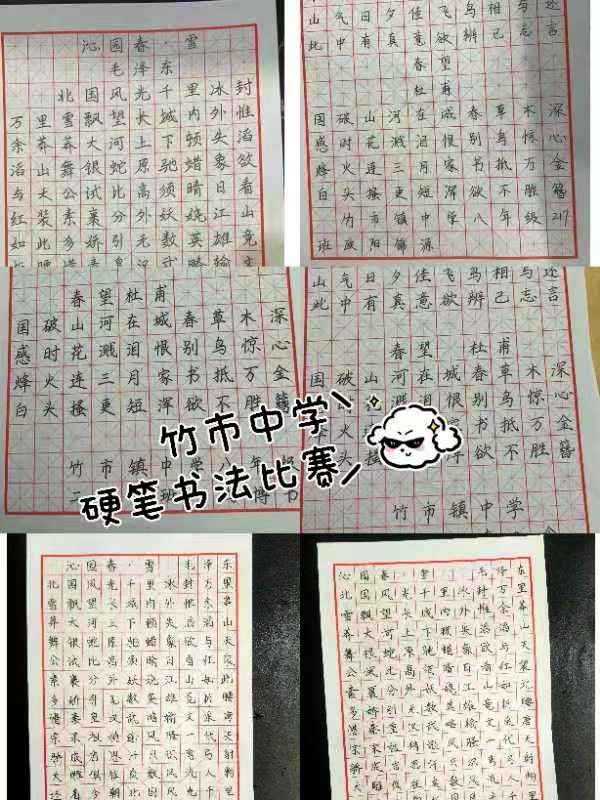 沁园春·雪
毛泽东
北国风光千里冰封
万里雪飘望长城内外惟
余莽莽大河上下顿失滔
滔山舞银蛇原驰蜡象欲
与天公试比高须晴日看
红装素裹分外妖娆江山
如此多娇引无数英雄竞
山气日夕佳飞鸟相与还
此中有真意欲辨己忘言
春望
杜甫
国破山河在城春草木深
感时花溅泪恨别鸟惊心
烽火连三月家书抵万金
白头搔更短浑欲不胜簪
竹市镇中学八年级217
班欧阳锦源
春望杜甫
国破山河在城春草木深
感时花溅泪恨别鸟惊心
烽火连三月家书抵万金
白头搔更短浑欲不胜簪
竹市镇中学八年级
山气日夕佳飞鸟相与还
此中有真意欲辨己忘言
春望 杜甫
国破山河在城春草木深
溅泪 别鸟惊心
书抵万金
头搔 欲不胜簪
竹市镇中学
竹市中学
硬笔书法比赛
沁园春·雪 毛泽东
北国风光千里冰封万里
雪飘望长城内外惟余莽
莽大河上下顿失滔滔山
舞银蛇原驰蜡象欲与天
公试比高须晴日看红装
素裹分外妖娆江山如此
沁园春·雪 毛泽东
北国风光千里冰封万里
雪飘望长城内外惟余莽
莽大河上下顿失滔滔山
舞银蛇原驰蜡象欲与天
公试比高须晴日看红装
素裹分外妖娆江山如此